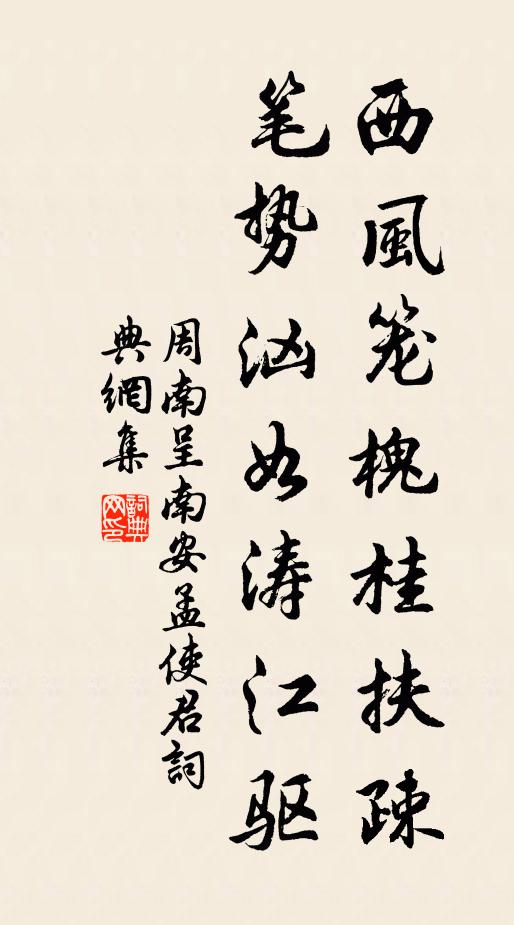 西風笼槐桂扶疎
笔势汹如涛江驱
周南呈南安孟使君詞
典網集
詞典網印